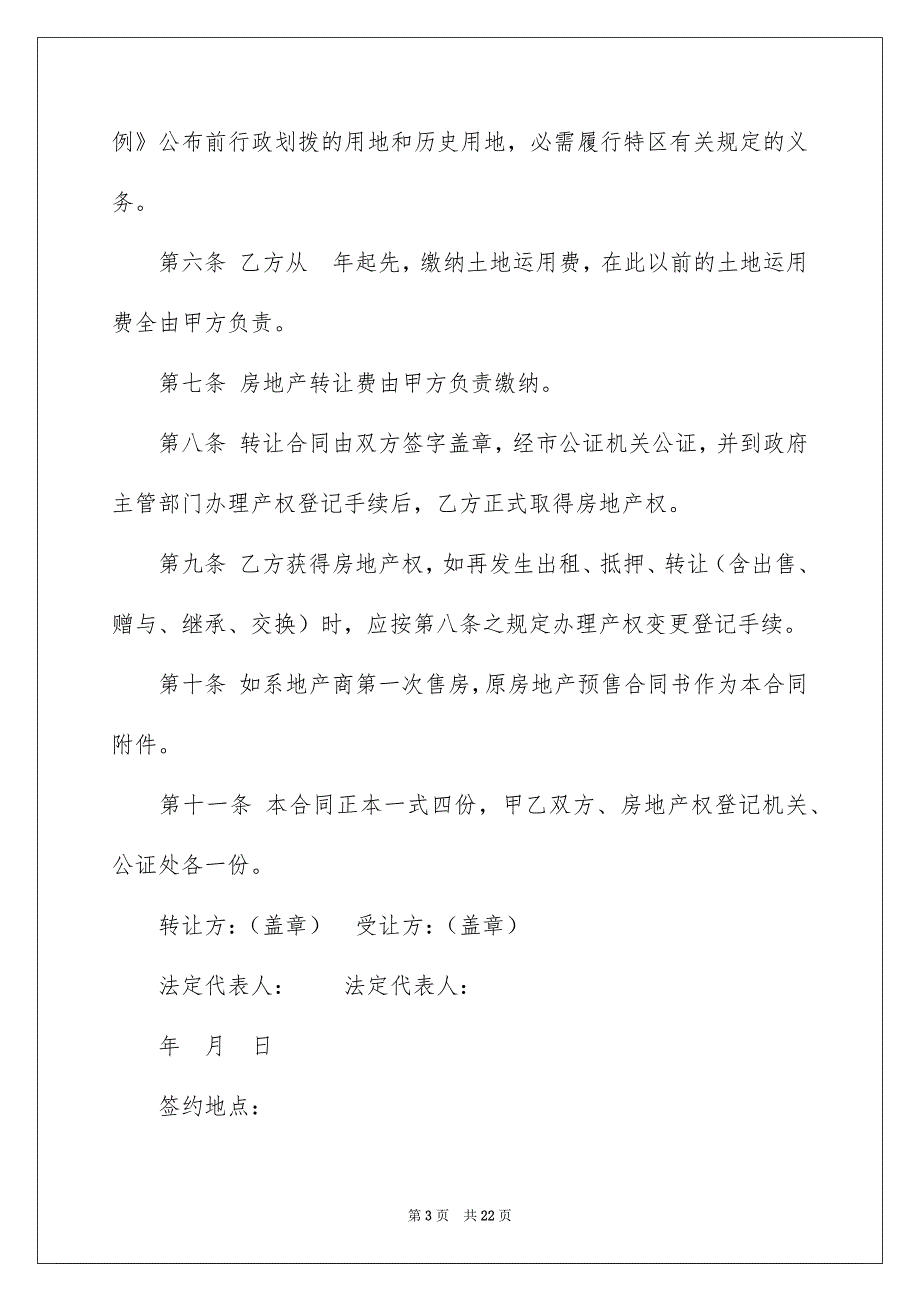 例》公布前行政划拨的用地和历史用地，必需履行特区有关规定的义
务。
第六条 乙方从　年起先，缴纳土地运用费，在此以前的土地运用
费全由甲方负责。
第七条 房地产转让费由甲方负责缴纳。
第八条 转让合同由双方签字盖章，经市公证机关公证，并到政府
主管部门办理产权登记手续后，乙方正式取得房地产权。
第九条 乙方获得房地产权，如再发生出租、抵押、转让（含出售、
赠与、继承、交换）时，应按第八条之规定办理产权变更登记手续。
第十条 如系地产商第一次售房，原房地产预售合同书作为本合同
附件。
第十一条 本合同正本一式四份，甲乙双方、房地产权登记机关、
公证处各一份。
转让方：（盖章）　受让方：（盖章）
法定代表人：　　法定代表人：
年　月　日
签约地点：
第 3 页　共 22 页